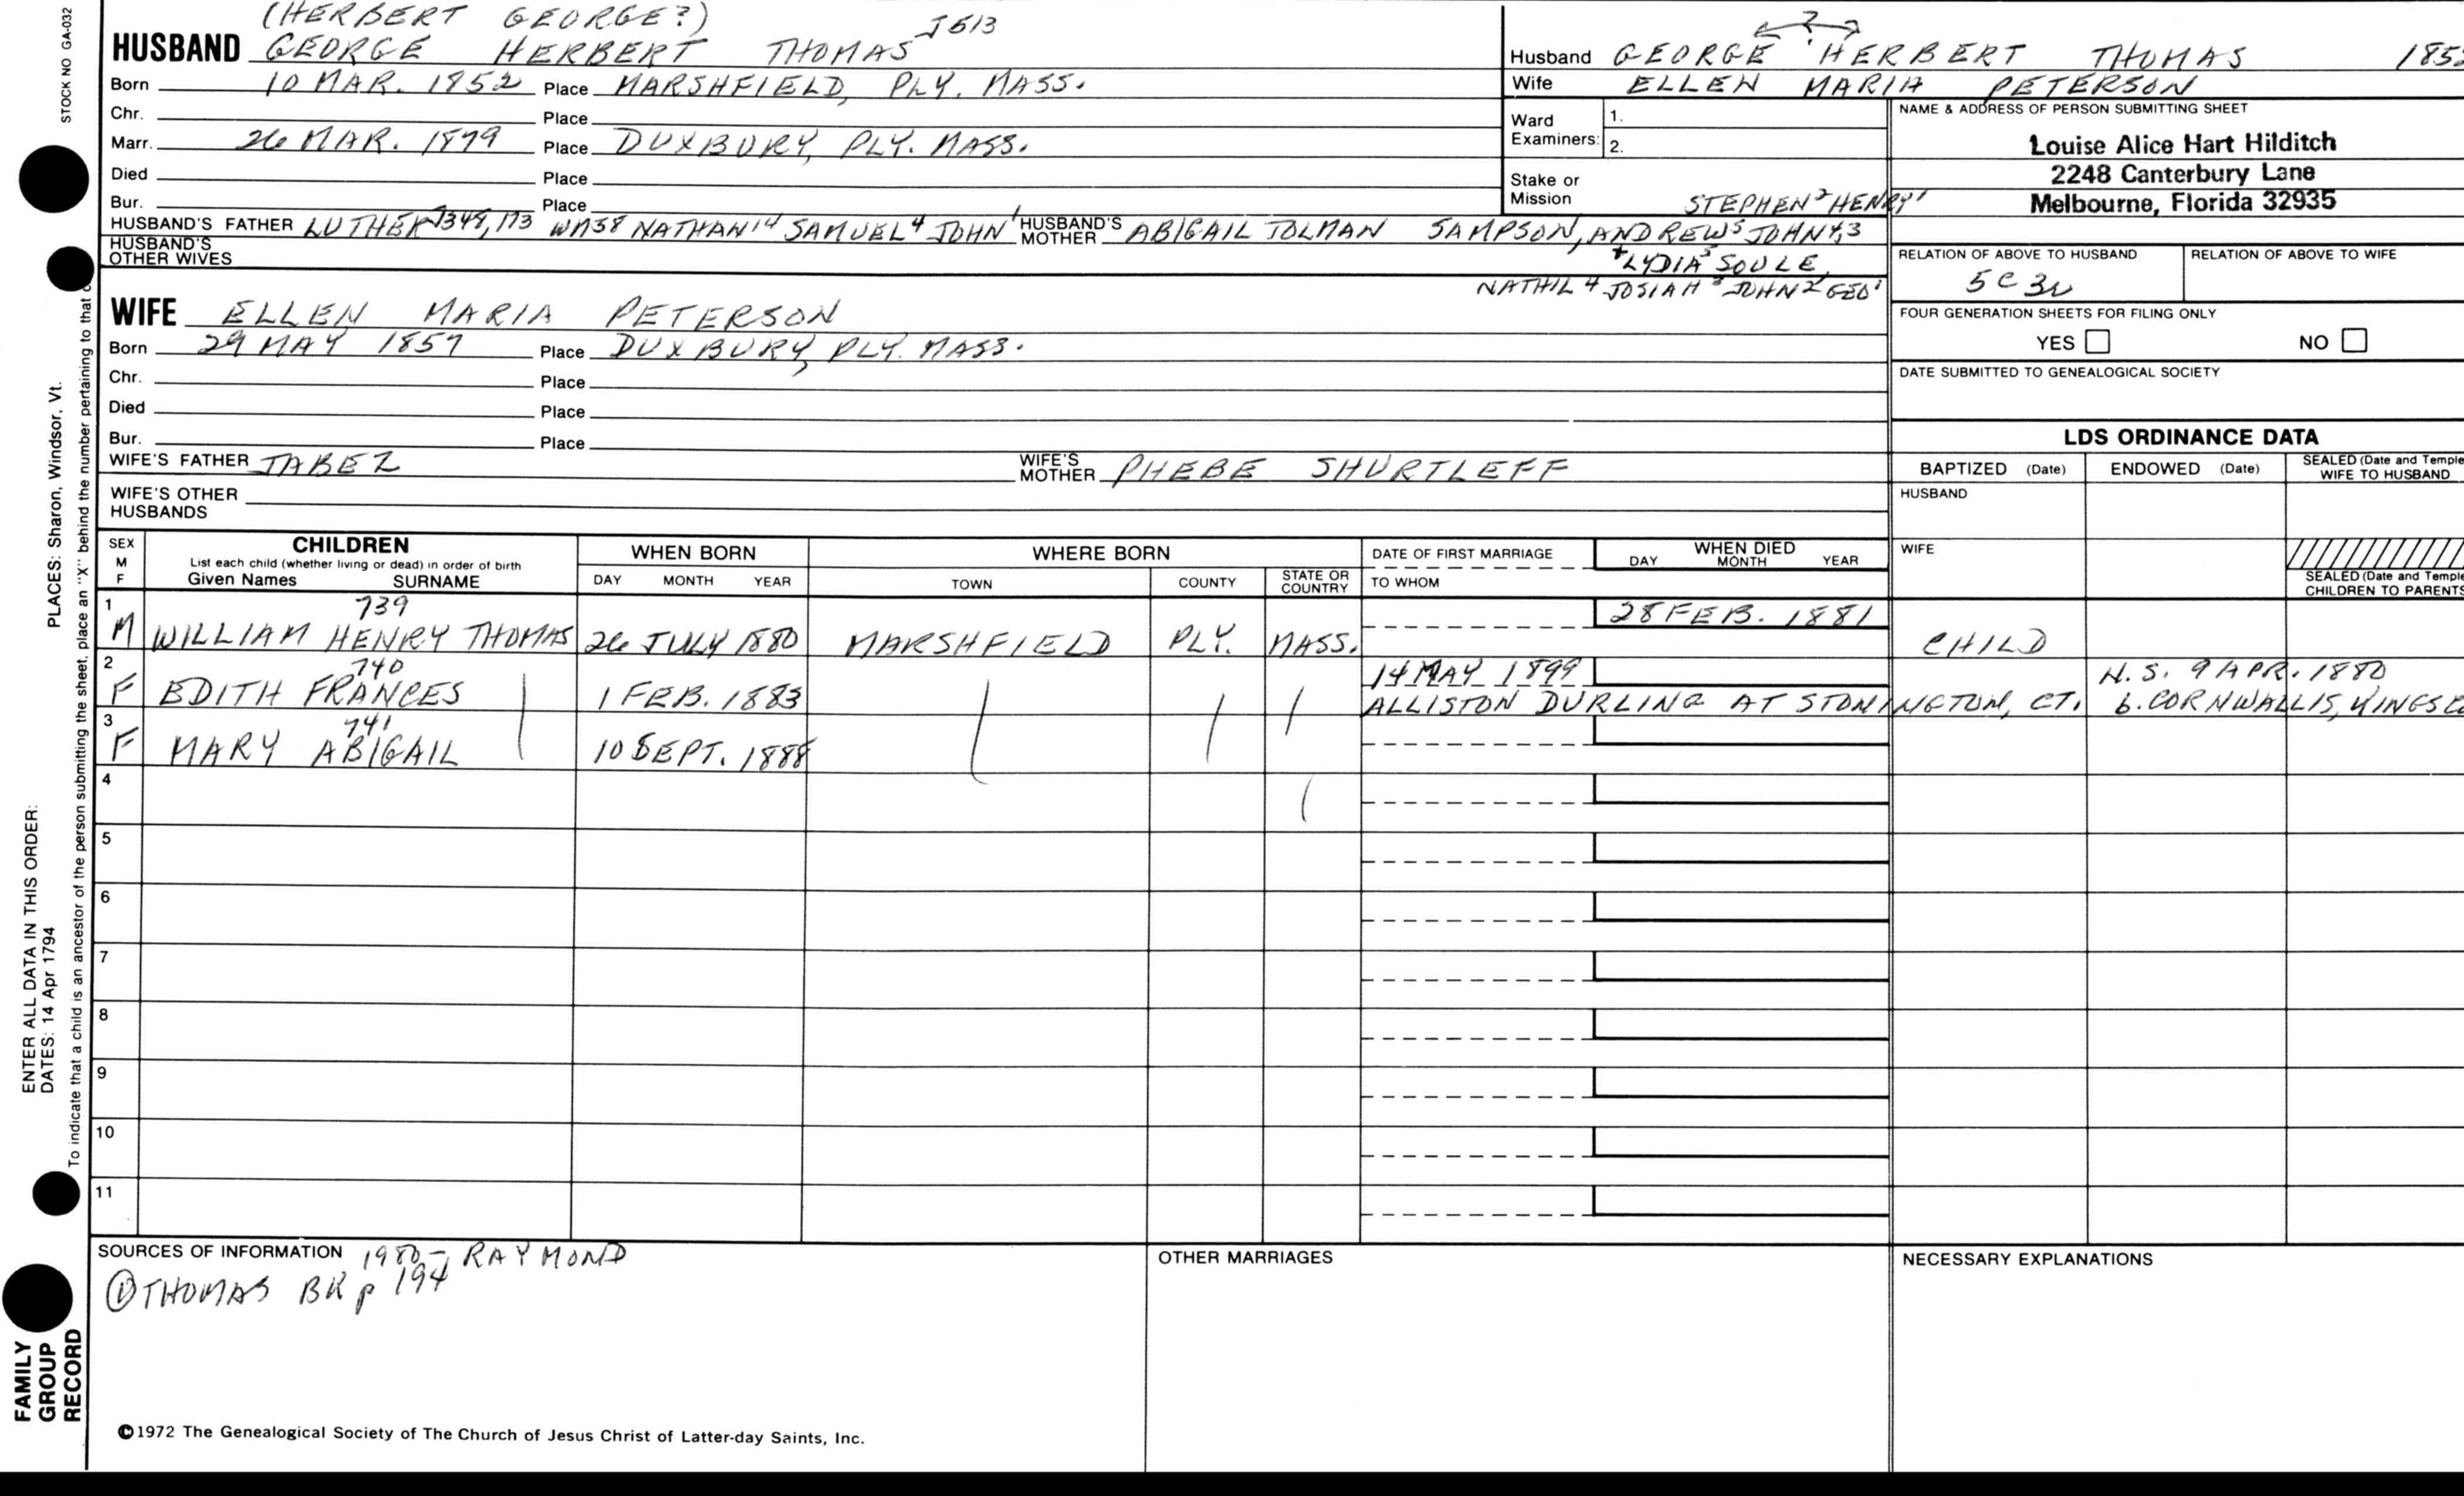 STOCK NO GA-032
(HERBERT GEORGE?)
HUSBAND GEORGE HERBERT THOMAS J513
Born 10 MAR. 1852 Place MARSHFIELD, PLY. MASS.
Chr. Place
Marr. 26 MAR. 1879 Place DUXBURY, PLY. MASS.
Died Place
Bur. Place
HUSBAND'S FATHER LUTHER 1348, 173 WM58 NATHAN14 SAMUEL4 JOHN1 HUSBAND'S MOTHER ABIGAIL TOLMAN SAMPSON, ANDREW5 JOHN4,3
STEPHEN2 HENRY1
HUSBAND'S OTHER WIVES
+ LYDIA5 SOULE,
NATHIL4 JOSIAH3 JOHN2 GEO1
WIFE ELLEN MARIA PETERSON
Born 29 MAY 1857 Place DUXBURY, PLY. MASS.
Chr. Place
Died Place
Bur. Place
WIFE'S FATHER JABEZ WIFE'S MOTHER PHEBE SHURTLEFF
WIFE'S OTHER HUSBANDS
?
Husband GEORGE HERBERT THOMAS
Wife ELLEN MARIA PETERSON
Ward Examiners: 1.
2.
Stake or Mission
NAME & ADDRESS OF PERSON SUBMITTING SHEET
Louise Alice Hart Hilditch
2248 Canterbury Lane
Melbourne, Florida 32935
RELATION OF ABOVE TO HUSBAND RELATION OF ABOVE TO WIFE
5C 3R
FOUR GENERATION SHEETS FOR FILING ONLY
YES NO
DATE SUBMITTED TO GENEALOGICAL SOCIETY
LDS ORDINANCE DATA
BAPTIZED (Date) ENDOWED (Date) SEALED (Date and Temple
WIFE TO HUSBAND
HUSBAND
WIFE
SEALED (Date and Temple
CHILDREN TO PARENTS
SEX M F
CHILDREN
List each child (whether living or dead) in order of birth
Given Names SURNAME
WHEN BORN
DAY MONTH YEAR
WHERE BORN
TOWN COUNTY STATE OR COUNTRY
DATE OF FIRST MARRIAGE
TO WHOM
WHEN DIED
DAY MONTH YEAR
1 739 28 FEB. 1881
M WILLIAM HENRY THOMAS 26 JULY 1880 MARSHFIELD PLY. MASS. CHILD
2 740 14 MAY 1899 N.S. 9 APR. 1880
F EDITH FRANCES 1 FEB. 1883 ALLISTON DURLING AT STONINGTON, CT. b. CORNWALLIS, KINGS
3 741
F MARY ABIGAIL 10 SEPT. 1888
4
5
6
7
8
9
10
11
SOURCES OF INFORMATION 1980 - RAYMOND
① THOMAS BK p 194
OTHER MARRIAGES
NECESSARY EXPLANATIONS
©1972 The Genealogical Society of The Church of Jesus Christ of Latter-day Saints, Inc.
PLACES: Sharon, Windsor, Vt.
ENTER ALL DATA IN THIS ORDER:
DATES: 14 Apr 1794
To indicate that a child is an ancestor of the person submitting the sheet, place an "X" behind the number pertaining to that
FAMILY
GROUP
RECORD